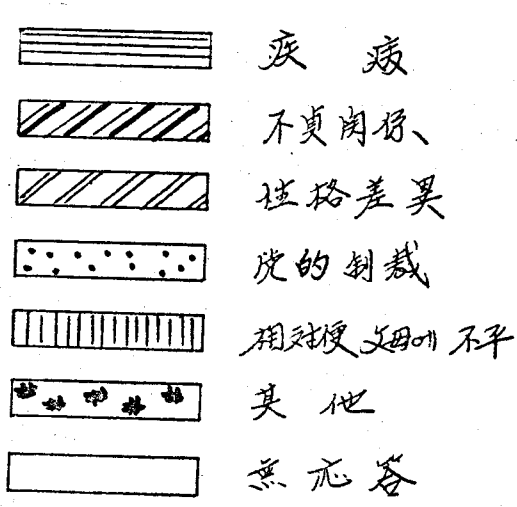 疾病
不貞関係、
性格差異
党的制裁
相対便 父母에 不平
其他
無応答